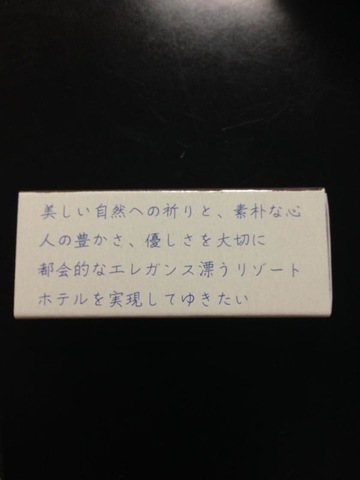 美しい自然への祈りと、素朴な心
人の豊かさ、優しさを大切に
都会的なエレガンス漂うリゾート
ホテルを実現してゆきたい